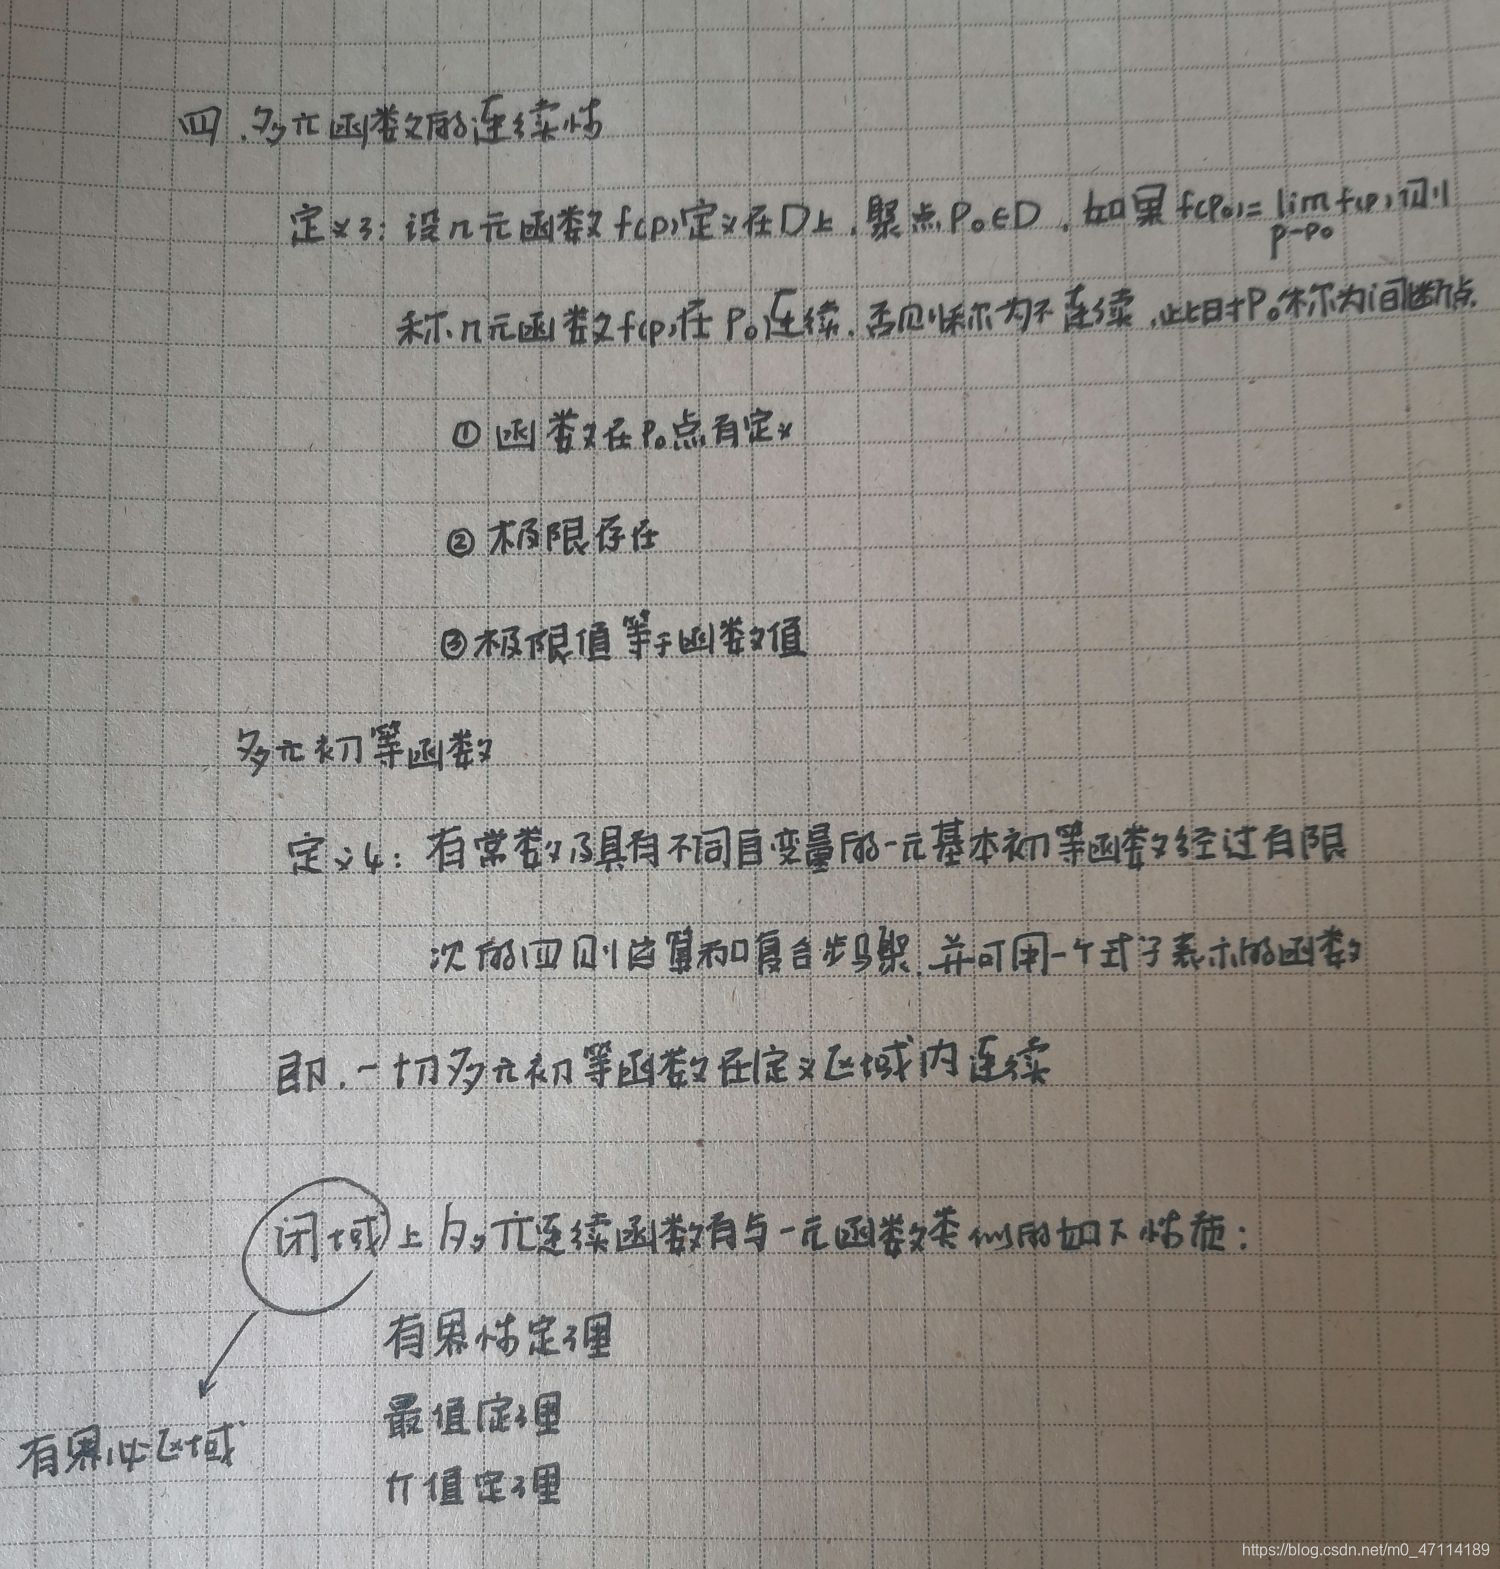 四、多元函数的连续性
定义3：设n元函数f(p)定义在D上，聚点P₀∈D，如果f(P₀)=lim f(p)，则
p→p₀
称n元函数f(p)在P₀连续，否则称为不连续，此时P₀称为间断点
①函数在P₀点有定义
②极限存在
③极限值等于函数值
多元初等函数
定义4：有常数及具有不同自变量的一元基本初等函数经过有限
次的四则运算和复合步骤，并可用一个式子表示的函数
即，一切多元初等函数在定义区域内连续
闭域上多元连续函数有与一元函数类似的如下性质：
有界性定理
最值定理
有界闭区域
介值定理
https://blog.csdn.net/m0_47114189